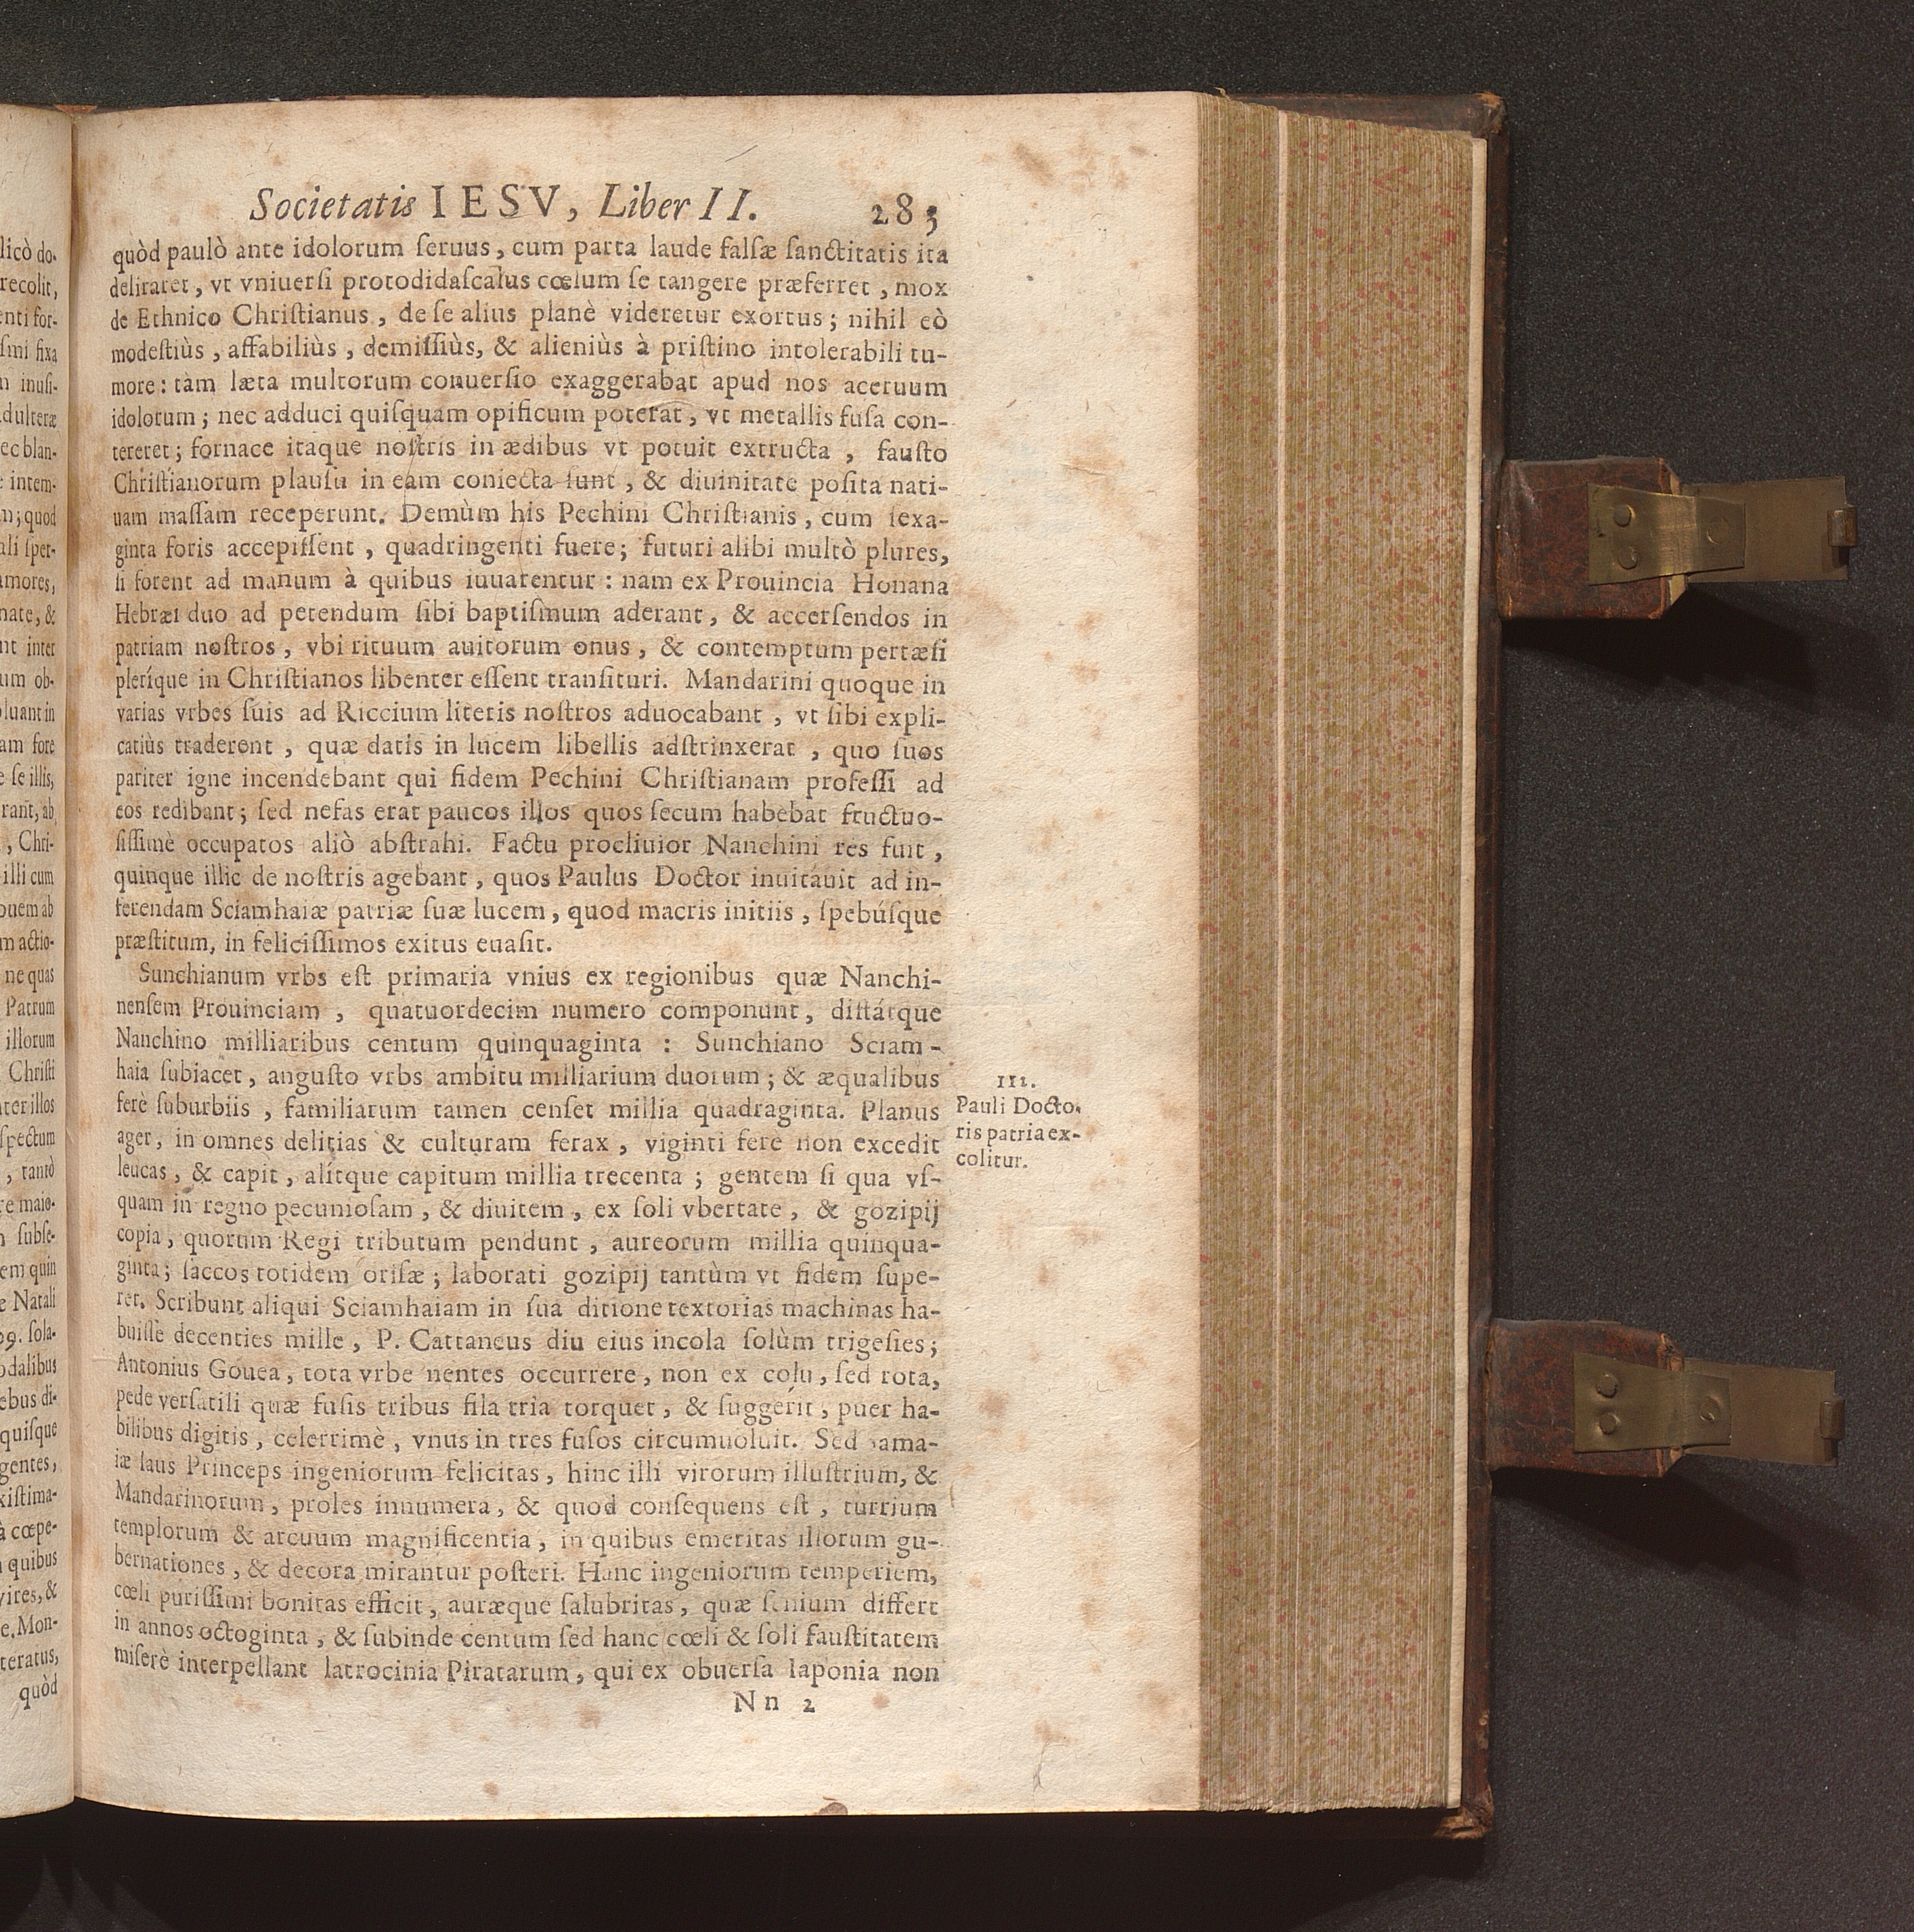 licò do-
recolit,
enti for-
ſmi fixa
n inuſi-
dulteræ
ec blan-
intem-
n; quod
ali ſper-
amores,
nate, &
nt inter
um ob-
luant in
am fore
e ſe illis,
rant, ab
, Chri-
illi cum
ouem ab
m actio-
ne quas
Patrum
illorum
Chriſti
ter illos
ſpectum
, tantò
re maio-
ſubſe-
em quin
e Natali
09. ſola-
odalibus
ebus di-
quiſque
gentes,
xiſtima-
à cœpe-
quibus
vires, &
e. Mon-
teratus,
quòd
Societatis IESV, Liber II. 283
quòd paulò ante idolorum ſeruus, cum parta laude falſæ ſanctitatis ita
deliraret, vt vniuerſi protodidaſcalus cœlum ſe tangere præferret, mox
de Ethnico Chriſtianus, de ſe alius planè videretur exortus; nihil eò
modeſtiùs, affabiliùs, demiſſiùs, & alieniùs à priſtino intolerabili tu-
more: tàm læta multorum conuerſio exaggerabat apud nos aceruum
idolorum; nec adduci quiſquam opificum poterat, vt metallis fuſa con-
tereret; fornace itaque noſtris in ædibus vt potuit extructa, fauſto
Chriſtianorum plauſu in eam coniecta ſunt, & diuinitate poſita nati-
uam maſſam receperunt. Demùm his Pechini Chriſtianis, cum ſexa-
ginta foris accepiſſent, quadringenti fuere; futuri alibi multò plures,
ſi forent ad manum à quibus iuuarentur: nam ex Prouincia Honana
Hebræi duo ad petendum ſibi baptiſmum aderant, & accerſendos in
patriam noſtros, vbi rituum auitorum onus, & contemptum pertæſi
pleríque in Chriſtianos libenter eſſent tranſituri. Mandarini quoque in
varias vrbes ſuis ad Riccium literis noſtros aduocabant, vt ſibi expli-
catiùs traderent, quæ datis in lucem libellis adſtrinxerat, quo ſuos
pariter igne incendebant qui fidem Pechini Chriſtianam profeſſi ad
eos redibant; ſed nefas erat paucos illos quos ſecum habebat fructuo-
ſiſſimè occupatos aliò abſtrahi. Factu procliuior Nanchini res fuit,
quinque illic de noſtris agebant, quos Paulus Doctor inuitauit ad in-
ferendam Sciamhaiæ patriæ ſuæ lucem, quod macris initiis, ſpebúſque
præſtitum, in feliciſſimos exitus euaſit.
Sunchianum vrbs eſt primaria vnius ex regionibus quæ Nanchi-
nenſem Prouinciam, quatuordecim numero componunt, diſtátque
Nanchino milliaribus centum quinquaginta: Sunchiano Sciam-
haia ſubiacet, anguſto vrbs ambitu milliarium duorum; & æqualibus
ferè ſuburbiis, familiarum tamen cenſet millia quadraginta. Planus
ager, in omnes delitias & culturam ferax, viginti ferè non excedit
leucas, & capit, alítque capitum millia trecenta; gentem ſi qua vſ-
quam in regno pecunioſam, & diuitem, ex ſoli vbertate, & gozipij
copia, quorum Regi tributum pendunt, aureorum millia quinqua-
ginta; ſaccos totidem oriſæ; laborati gozipij tantùm vt fidem ſupe-
ret. Scribunt aliqui Sciamhaiam in ſua ditione textorias machinas ha-
buiſſe decenties mille, P. Cattaneus diu eius incola ſolùm trigeſies;
Antonius Gouea, tota vrbe nentes occurrere, non ex colu, ſed rota,
pede verſatili quæ fuſis tribus fila tria torquet, & ſuggerit, puer ha-
bilibus digitis, celerrimè, vnus in tres fuſos circumuoluit. Sed ama-
iæ laus Princeps ingeniorum felicitas, hinc illi virorum illuſtrium, &
Mandarinorum, proles innumera, & quod conſequens eſt, turrium
templorum & arcuum magnificentia, in quibus emeritas illorum gu-
bernationes, & decora mirantur poſteri. Hanc ingeniorum temperiem,
cœli puriſſimi bonitas efficit, auræque ſalubritas, quæ ſenium differt
in annos octoginta, & ſubinde centum ſed hanc cœli & ſoli fauſtitatem
miſerè interpellant latrocinia Piratarum, qui ex obuerſa Iaponia non
Nn 2
III.
Pauli Docto-
ris patria ex-
colitur.